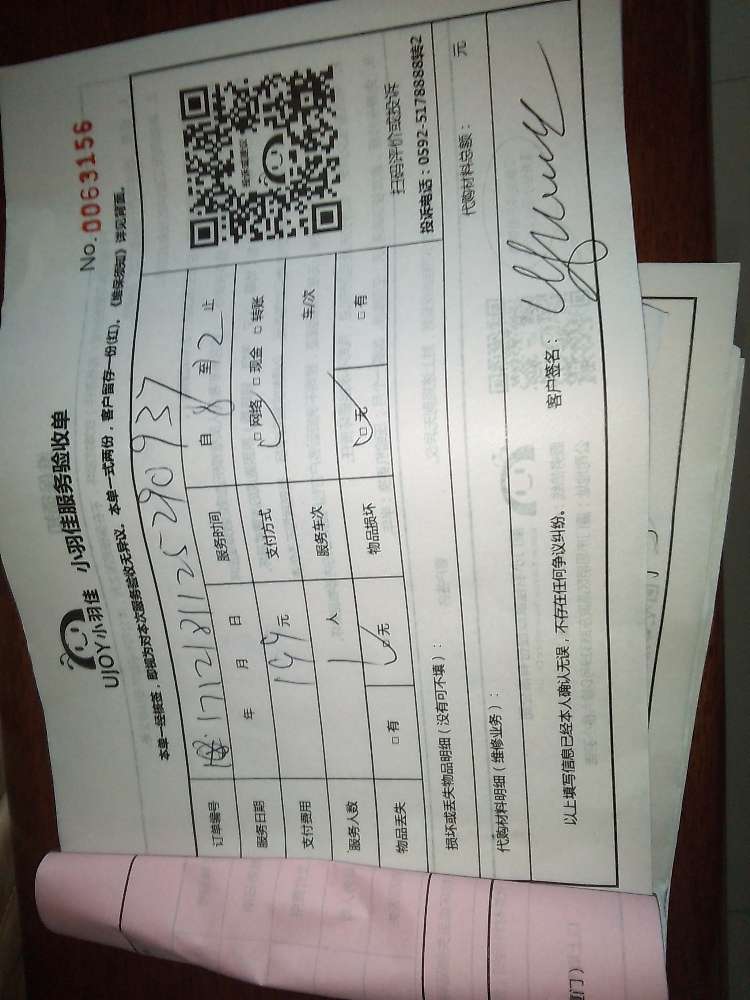 UJOY小羽佳 小羽佳服务验收单
No. 0063156
本单一经核签，即视为对本次服务验收无异议。本单一式两份，客户留存一份(红)，《维保须知》详见背面。
订单编号 1712181125290937
服务日期 年 月 日 服务时间 自 8 至 12 止
支付费用 199 元 支付方式 □网络 □现金 □转账
服务人数 1 人 服务车次 车/次
物品丢失 □有 □无 物品损坏 □无 □有
扫码评价或投诉
投诉电话：0592-5178888转2
损坏或丢失物品明细（没有可不填）：
代购材料明细（维修业务）： 代购材料总额： 元
以上填写信息已经本人确认无误，不存在任何争议纠纷。 客户签名：